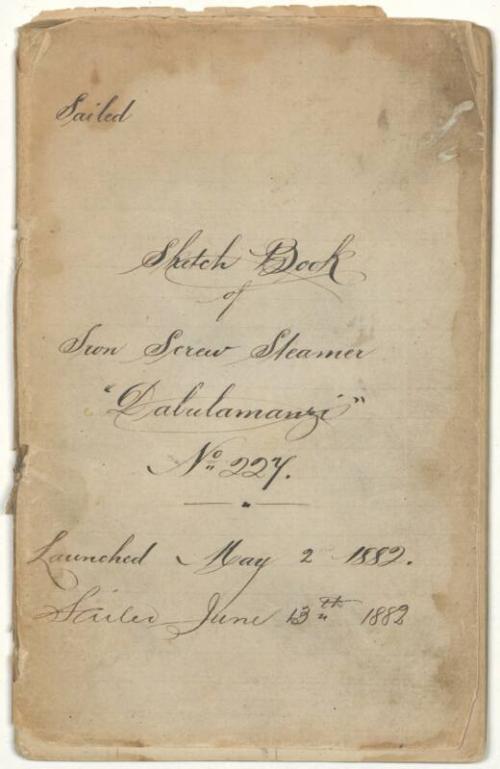 Sailed
Sketch Book
of
Iron Screw Steamer
"Dabulamanzi"
No 227.
Launched May 2 1882.
Sailed June 13th 1882